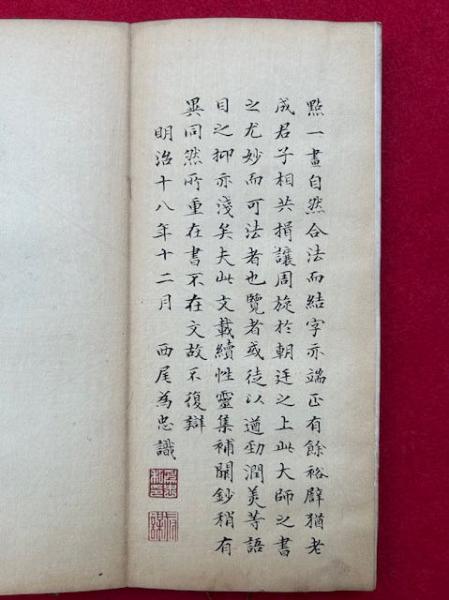 點一畫自然合法而結字亦端正有餘裕譬猶老
成君子相共揖讓周旋於朝廷之上此大師之書
之尤妙而可法者也覽者或徒以遒勁潤美等語
目之抑亦淺矣夫此文載續性靈集補闕鈔稍有
異同然所重在書不在文故不復辯
明治十八年十二月 西尾為忠識